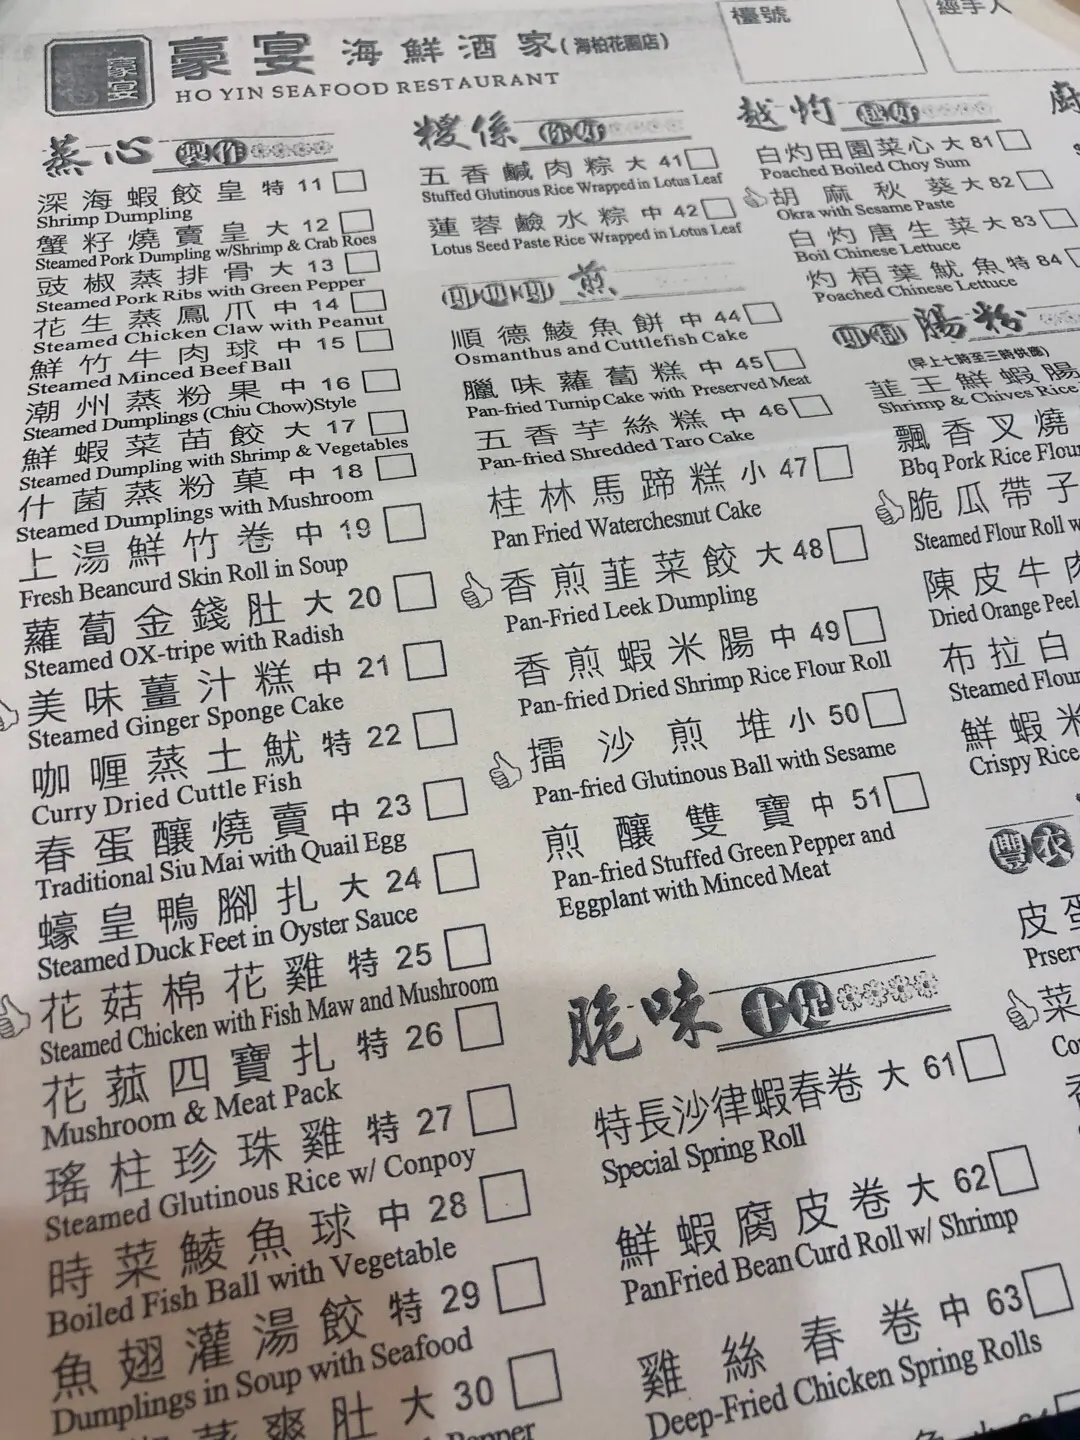 豪宴
豪宴 海鮮酒家(海柏花園店)
HO YIN SEAFOOD RESTAURANT
檯號
經手人
蒸心 製作
深海蝦餃皇 特 11
Shrimp Dumpling
蟹籽燒賣皇 大 12
Steamed Pork Dumpling w/Shrimp & Crab Roes
豉椒蒸排骨 大 13
Steamed Pork Ribs with Green Pepper
花生蒸鳳爪 中 14
Steamed Chicken Claw with Peanut
鮮竹牛肉球 中 15
Steamed Minced Beef Ball
潮州蒸粉果 中 16
Steamed Dumplings (Chiu Chow)Style
鮮蝦菜苗餃 大 17
Steamed Dumpling with Shrimp & Vegetables
什菌蒸粉菓 中 18
Steamed Dumplings with Mushroom
上湯鮮竹卷 中 19
Fresh Beancurd Skin Roll in Soup
蘿蔔金錢肚 大 20
Steamed OX-tripe with Radish
美味薑汁糕 中 21
Steamed Ginger Sponge Cake
咖喱蒸土魷 特 22
Curry Dried Cuttle Fish
春蛋釀燒賣 中 23
Traditional Siu Mai with Quail Egg
蠔皇鴨腳扎 大 24
Steamed Duck Feet in Oyster Sauce
花菇棉花雞 特 25
Steamed Chicken with Fish Maw and Mushroom
花菰四寶扎 特 26
Mushroom & Meat Pack
瑤柱珍珠雞 特 27
Steamed Glutinous Rice w/ Conpoy
時菜鯪魚球 中 28
Boiled Fish Ball with Vegetable
魚翅灌湯餃 特 29
Dumplings in Soup with Seafood
蒸爽肚 大 30
Pepper
糭係
五香鹹肉粽 大 41
Stuffed Glutinous Rice Wrapped in Lotus Leaf
蓮蓉鹼水粽 中 42
Lotus Seed Paste Rice Wrapped in Lotus Leaf
煎
順德鯪魚餅 中 44
Osmanthus and Cuttlefish Cake
臘味蘿蔔糕 中 45
Pan-fried Turnip Cake with Preserved Meat
五香芋絲糕 中 46
Pan-fried Shredded Taro Cake
桂林馬蹄糕 小 47
Pan Fried Waterchesnut Cake
香煎韮菜餃 大 48
Pan-Fried Leek Dumpling
香煎蝦米腸 中 49
Pan-fried Dried Shrimp Rice Flour Roll
擂沙煎堆 小 50
Pan-fried Glutinous Ball with Sesame
煎釀雙寶 中 51
Pan-fried Stuffed Green Pepper and
Eggplant with Minced Meat
脆味 十足
特長沙律蝦春卷 大 61
Special Spring Roll
鮮蝦腐皮卷 大 62
PanFried Bean Curd Roll w/ Shrimp
雞絲春卷 中 63
Deep-Fried Chicken Spring Rolls
越灼
白灼田園菜心 大 81
Poached Boiled Choy Sum
胡麻秋葵 大 82
Okra with Sesame Paste
白灼唐生菜 大 83
Boil Chinese Lettuce
灼栢葉魷魚 特 84
Poached Chinese Lettuce
腸粉
(早上七時至三時供應)
韮王鮮蝦腸
Shrimp & Chives Rice
飄香叉燒
Bbq Pork Rice Flour
脆瓜帶子
Steamed Flour Roll w
陳皮牛肉
Dried Orange Peel
布拉白
Steamed Flour
鮮蝦米
Crispy Rice
豐衣
皮蛋
Prser
菜
Co